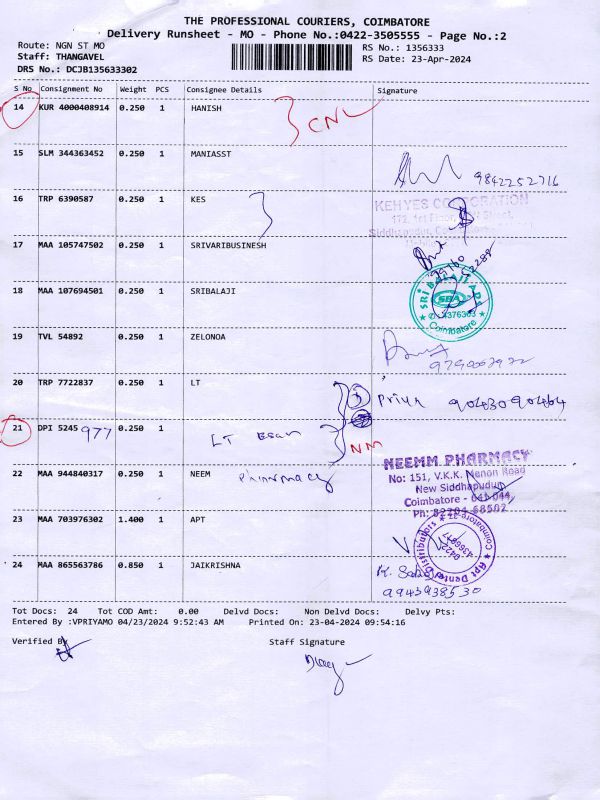 THE PROFESSIONAL COURIERS, COIMBATORE
Delivery Runsheet - MO - Phone No.:0422-3505555 - Page No.:2
Route: NGN ST MO
RS No.: 1356333
Staff: THANGAVEL
RS Date: 23-Apr-2024
DRS No.: DCJB135633302
S No Consignment No Weight PCS Consignee Details Signature
14 KUR 4000408914 0.250 1 HANISH
CNL
15 SLM 344363452 0.250 1 MANIASST
9842252716
16 TRP 6390587 0.250 1 KES
KEHYES CORPORATION
172, 1st Floor, Street,
Siddhapudur,
17 MAA 105747502 0.250 1 SRIVARIBUSINESH
18 MAA 107694501 0.250 1 SRIBALAJI
SRI BALAJI
SBA
4376303
Coimbatore
19 TVL 54892 0.250 1 ZELONOA
20 TRP 7722837 0.250 1 LT
Priya 90430 90464
21 DPI 5245 977 0.250 1 LT
NM
22 MAA 944840317 0.250 1 NEEM Pharmacy
NEEMM PHARMACY
No: 151, V.K.K. Menon Road
New Siddhapudur
Coimbatore - 641 044,
Ph: 82204 68502
23 MAA 703976302 1.400 1 APT
Apt Dental Distributors
Coimbatore
0422
4366877
24 MAA 865563786 0.850 1 JAIKRISHNA
9943938530
Tot Docs: 24 Tot COD Amt: 0.00 Delvd Docs: Non Delvd Docs: Delvy Pts:
Entered By :VPRIYAMO 04/23/2024 9:52:43 AM Printed On: 23-04-2024 09:54:16
Verified By
Staff Signature